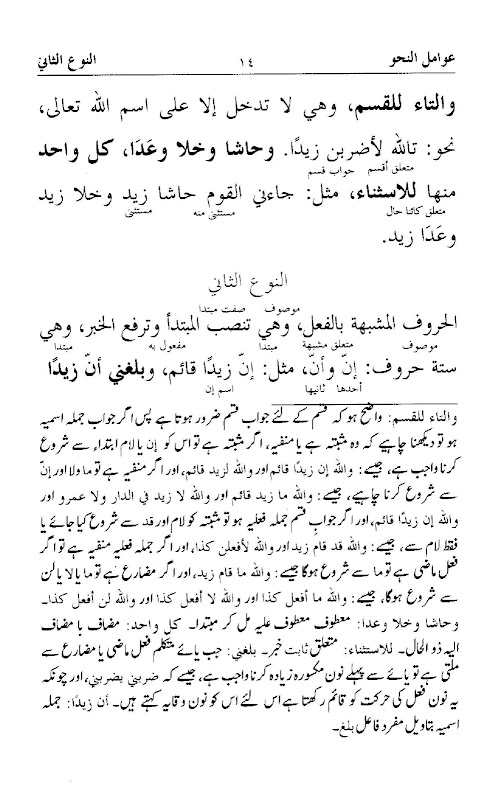 عوامل النحو ١٤ النوع الثاني
والتاء للقسم، وهي لا تدخل إلا على اسم الله تعالى،
نحو: تالله لأضربن زيدًا. وحاشا وخلا وعَدَا، كل واحد
متعلق أقسم جواب قسم
منها للاستثناء، مثل: جاءني القوم حاشا زيد وخلا زيد
متعلق كائنا حال مستثنى منه مستثنى
وعَدَا زيد.
النوع الثاني
موصوف صفت مبتدا
الحروف المشبهة بالفعل، وهي تنصب المبتدأ وترفع الخبر، وهي
موصوف متعلق مشبهة مبتدا مفعول به مبتدا
ستة حروف: إنّ وأنّ، مثل: إنّ زيدًا قائم، وبلغني أنّ زيدًا
أحدها ثانيها اسم إن
والتاء للقسم: واضح ہو کہ قسم کے لئے جواب قسم ضرور ہوتا ہے پس اگر جواب جملہ اسمیہ
ہو تو دیکھنا چاہیے کہ وہ مثبتہ ہے یا منفیہ، اگر مثبتہ ہے تو اس کو إن یا لام ابتداء سے شروع
کرنا واجب ہے، جیسے: والله إن زيدًا قائم اور والله لزيد قائم، اور اگر منفیہ ہے تو ما ولا اور إنْ
سے شروع کرنا چاہیے، جیسے: والله ما زيد قائم اور والله لا زيد في الدار ولا عمرو اور
والله إن زيدًا قائم، اور اگر جواب قسم جملہ فعلیہ ہو تو مثبتہ کو لام اور قد سے شروع کیا جائے یا
فقط لام سے، جیسے: والله قد قام زيد اور والله لأفعلن كذا، اور اگر جملہ فعلیہ منفیہ ہے تو اگر
فعل ماضی ہے تو ما سے شروع ہوگا جیسے: والله ما قام زيد، اور اگر مضارع ہے تو ما یا لا یا لن
سے شروع ہوگا، جیسے: والله ما أفعل كذا اور والله لا أفعل كذا اور والله لن أفعل كذا۔
وحاشا وخلا وعدا: معطوف معطوف علیہ مل کر مبتدا۔ كل واحد: مضاف با مضاف
الیہ ذو الحال۔ للاستثناء: متعلق ثابت خبر۔ بلغني: جب یائے متکلم فعل ماضی یا مضارع سے
ملتی ہے تو یائے سے پہلے نون مکسورہ زیادہ کرنا واجب ہے، جیسے کہ ضربني يضربني، اور چونکہ
یہ نون فعل کی حرکت کو قائم رکھتا ہے اس لئے اس کو نون وقایہ کہتے ہیں۔ أن زيدًا: جملہ
اسمیہ بتاویل مفرد فاعل بلغ۔